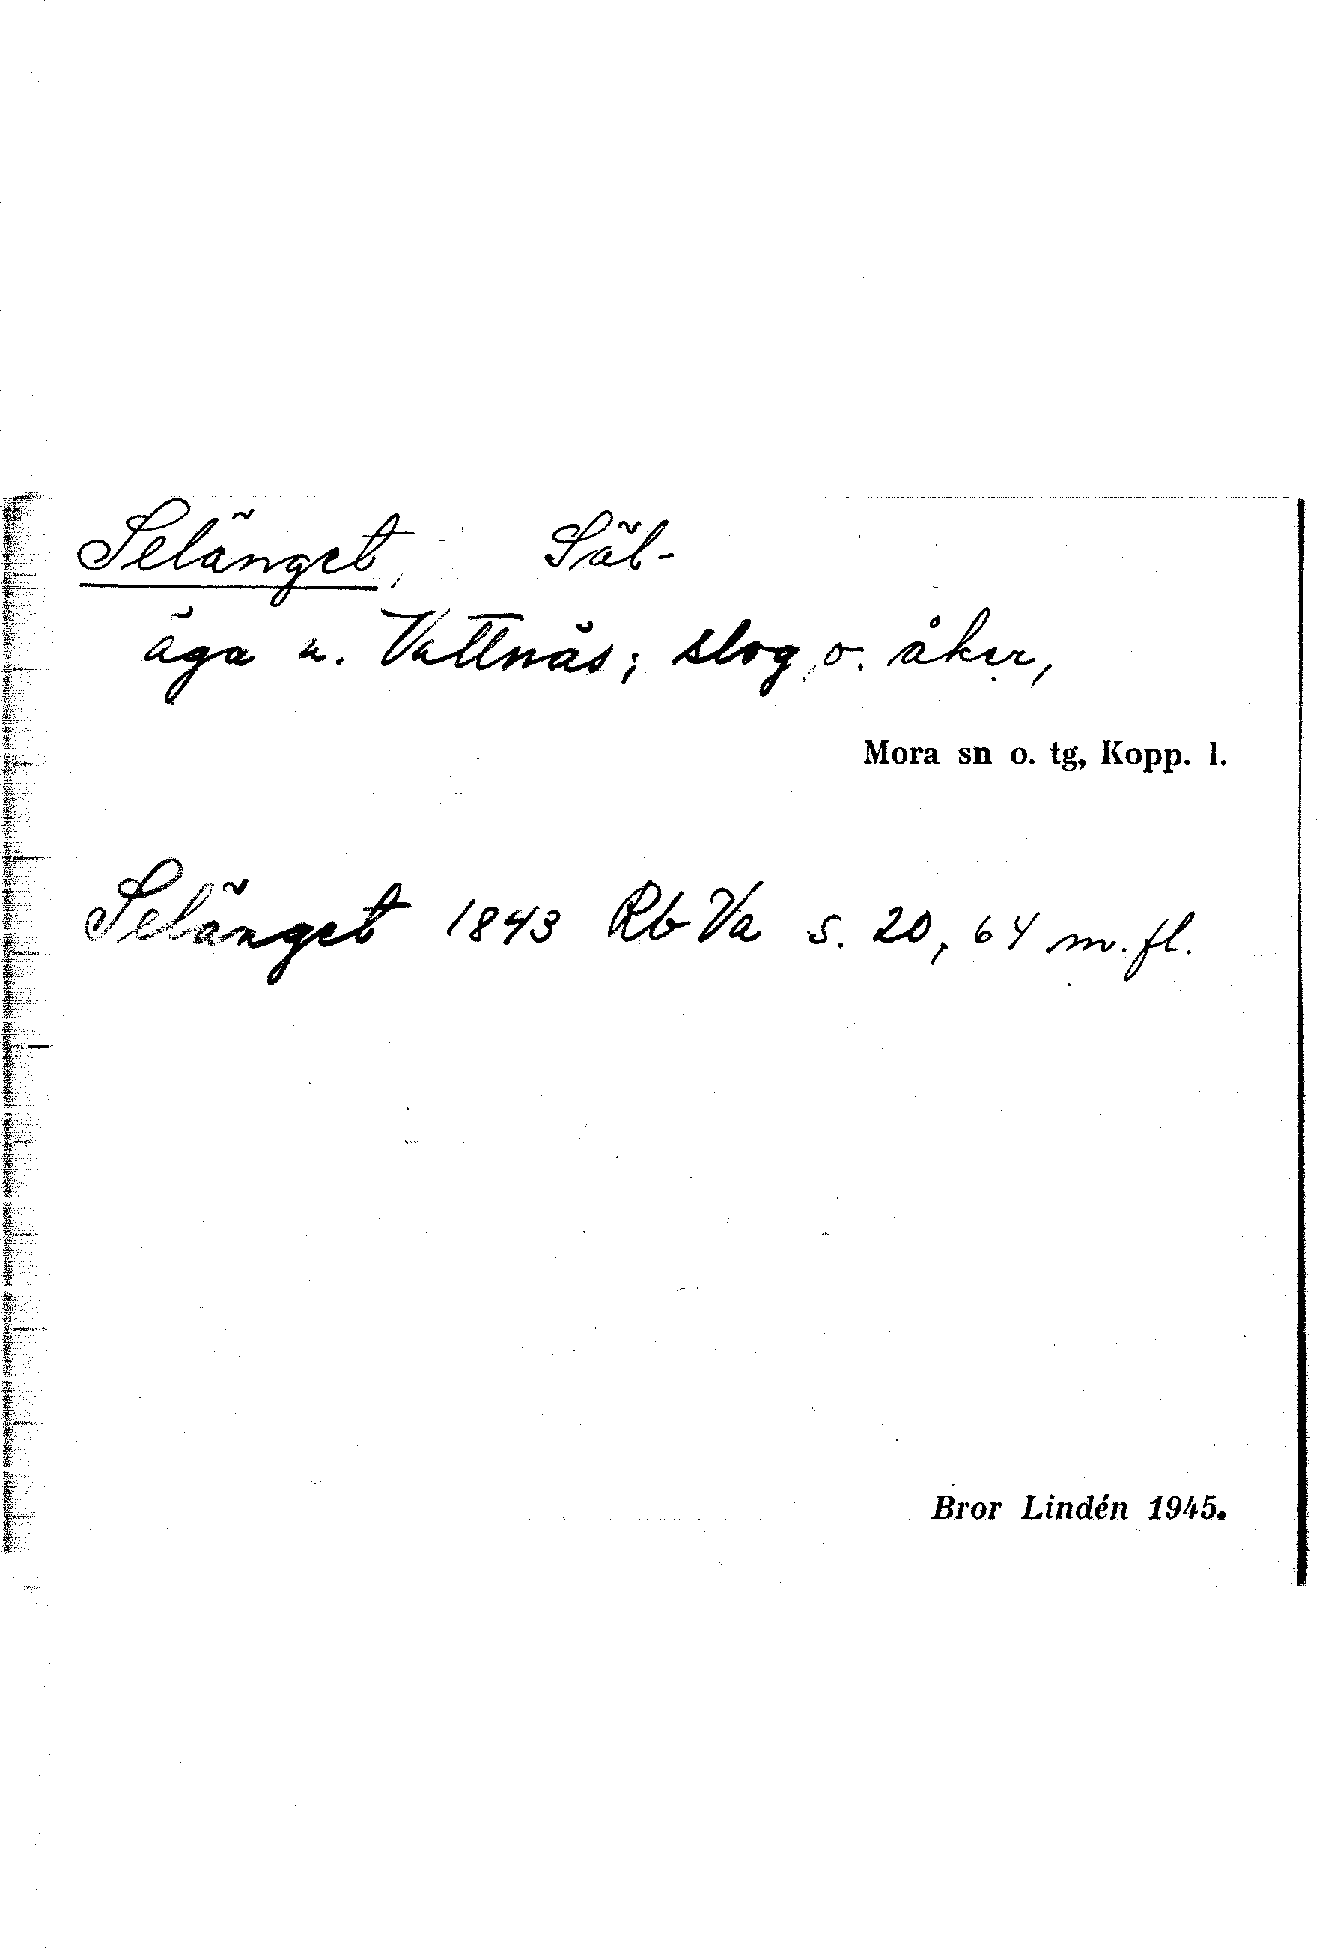 Selänget, Säl-
äga u. Vattnäs; slog o. åker,
Mora sn o. tg, Kopp. l.
Selänget 1843 Rb Va s. 20, 64 m. fl.
Bror Lindén 1945.